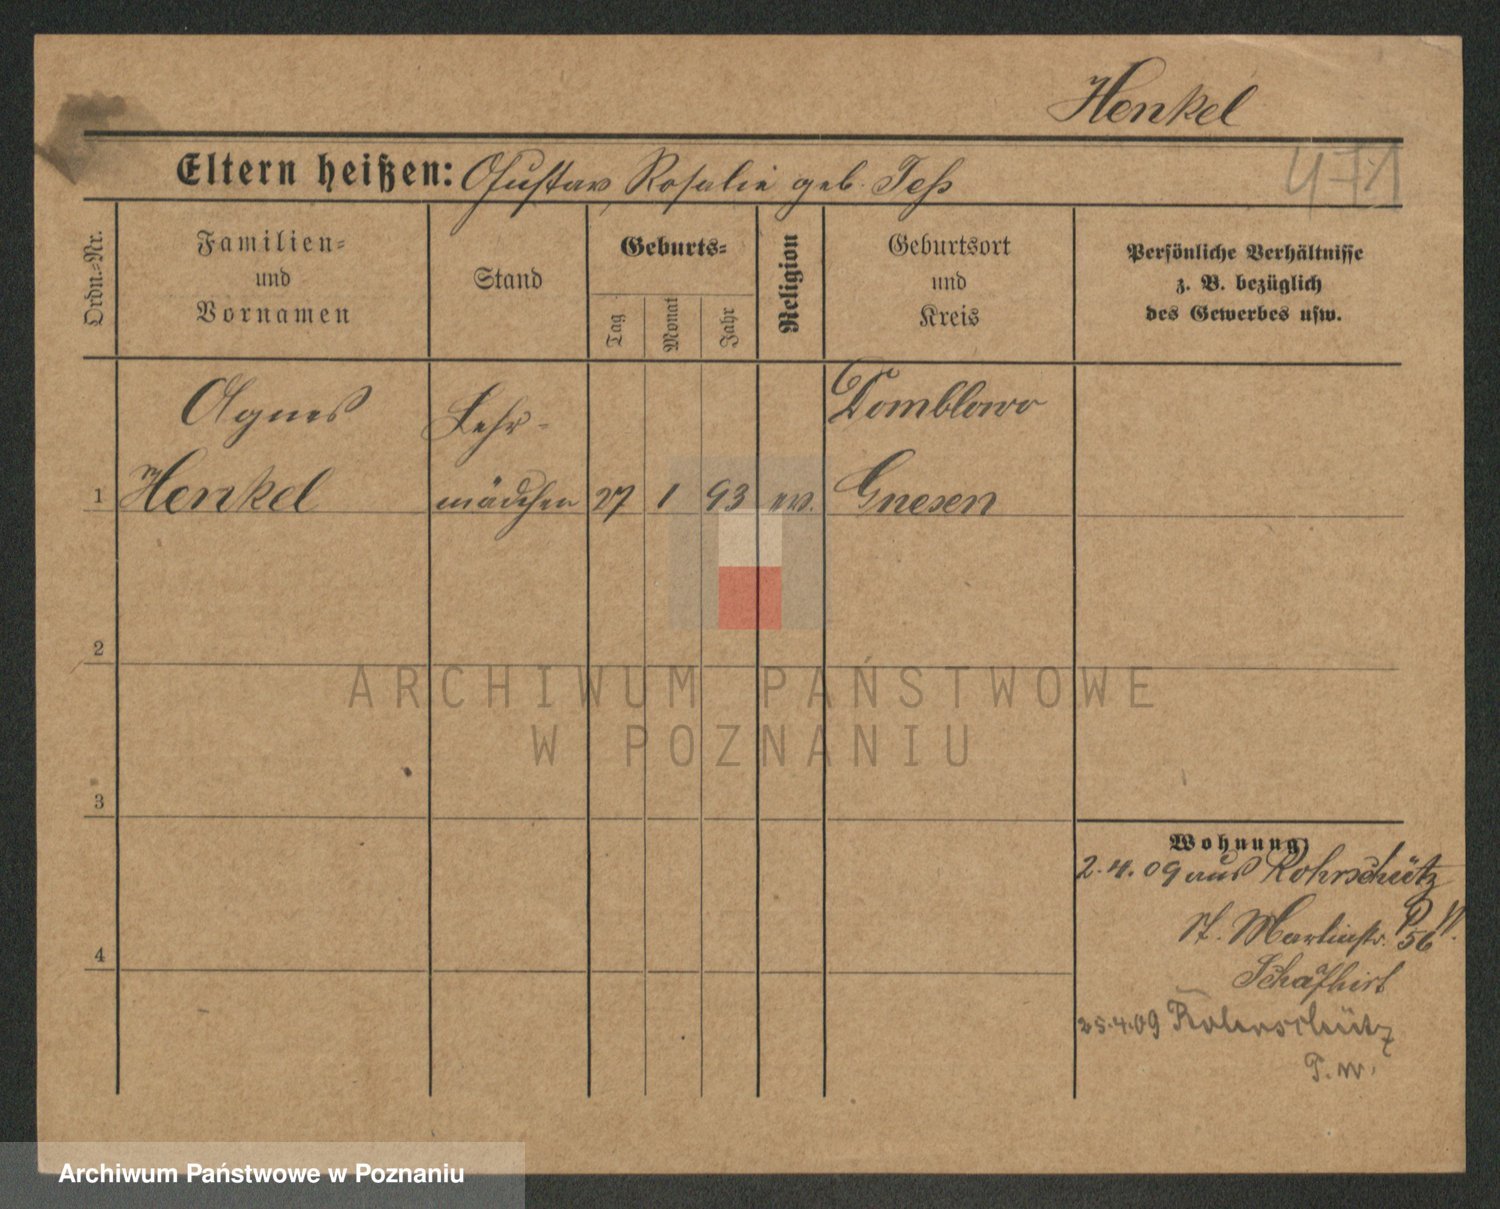 Henkel
471
Eltern heißen: Gustav, Rosalie geb. Teß
Ordn.-Nr.
Familien-
und
Vornamen
Stand
Geburts-
Tag
Monat
Jahr
Religion
Geburtsort
und
Kreis
Persönliche Verhältnisse
z. B. bezüglich
des Gewerbes usw.
Agnes
Henkel
Lehr-
mädchen
1
27
1
93
ev.
Domblowo
Gnesen
2
3
4
Wohnung:
2.4.09 aus Rohrschütz
P W.
St. Martinstr. 56
25.4.09 Rohrschütz
P. W.
ARCHIWUM PAŃSTWOWE
W POZNANIU
Archiwum Państwowe w Poznaniu